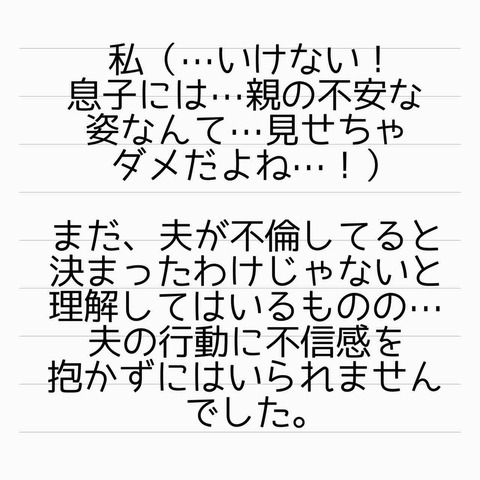 私（…いけない！
息子には…親の不安な
姿なんて…見せちゃ
ダメだよね…！）
まだ、夫が不倫してると
決まったわけじゃないと
理解してはいるものの…
夫の行動に不信感を
抱かずにはいられません
でした。